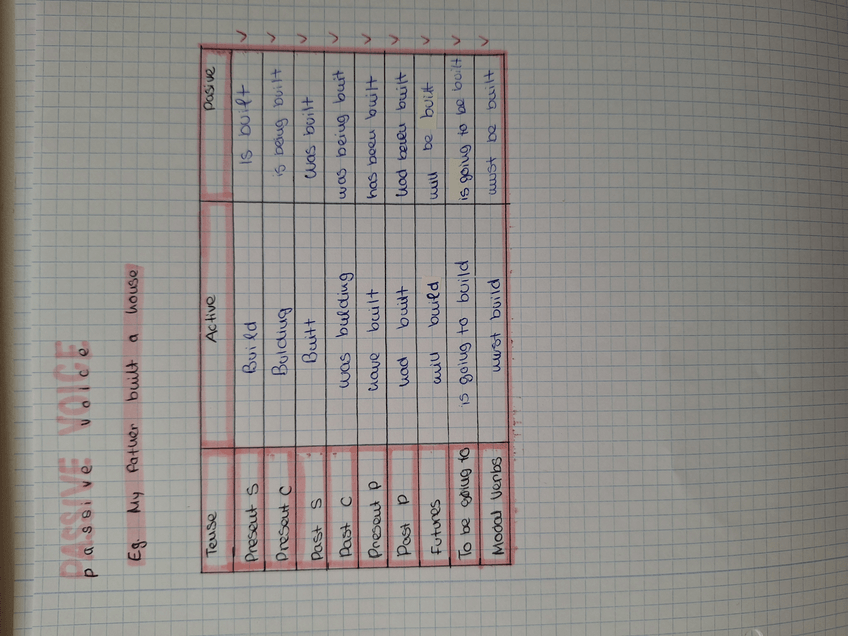 PASSIVE VOICE
passive voice
Eg. My Father built a house
Tense Active Pasive
Present S Build Is built
Present C Bulding is being built
Past S Built was built
Past C was bulding was being built
Present P have built has been built
Past P had built had been built
Futures will build will be built
To be going to is going to build is going to be built
Modal Verbs must build must be built